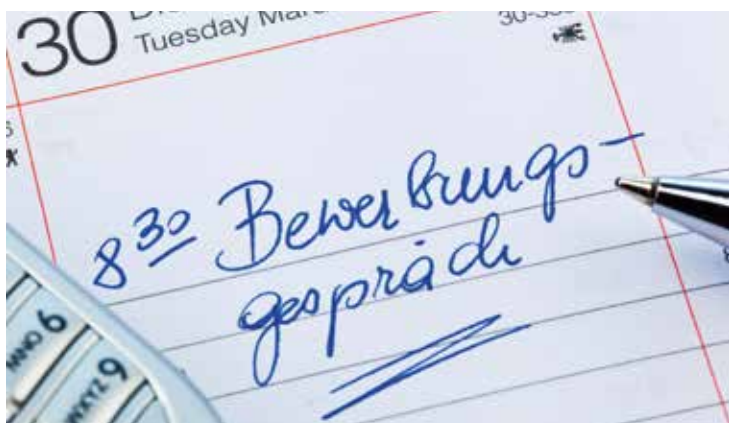 30
Tuesday
8 30 Bewerbungs-
gespräch
MNO 6
WXYZ 9